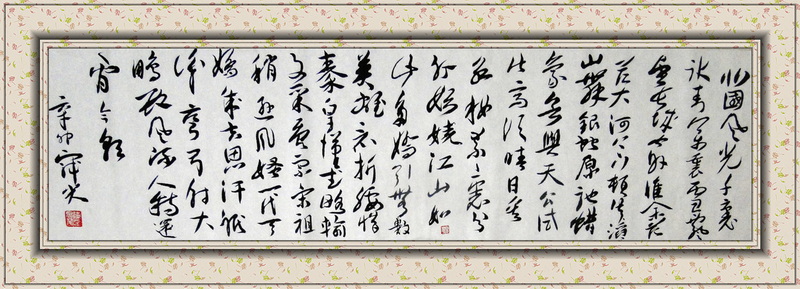 北國風光千里
冰封万里雪飄
望長城内外惟余莽
莽大河上下頓失滔滔
山舞銀蛇原馳蠟
象欲與天公試
比高須晴日看
紅裝素裹分
外妖嬈江山如
此多嬌引無數
英雄竞折腰惜
秦皇漢武略輸
文采唐宗宋祖
稍遜風騷一代天
驕成吉思汗祇
識彎弓射大
鵰數風流人物還
看今朝
辛卯